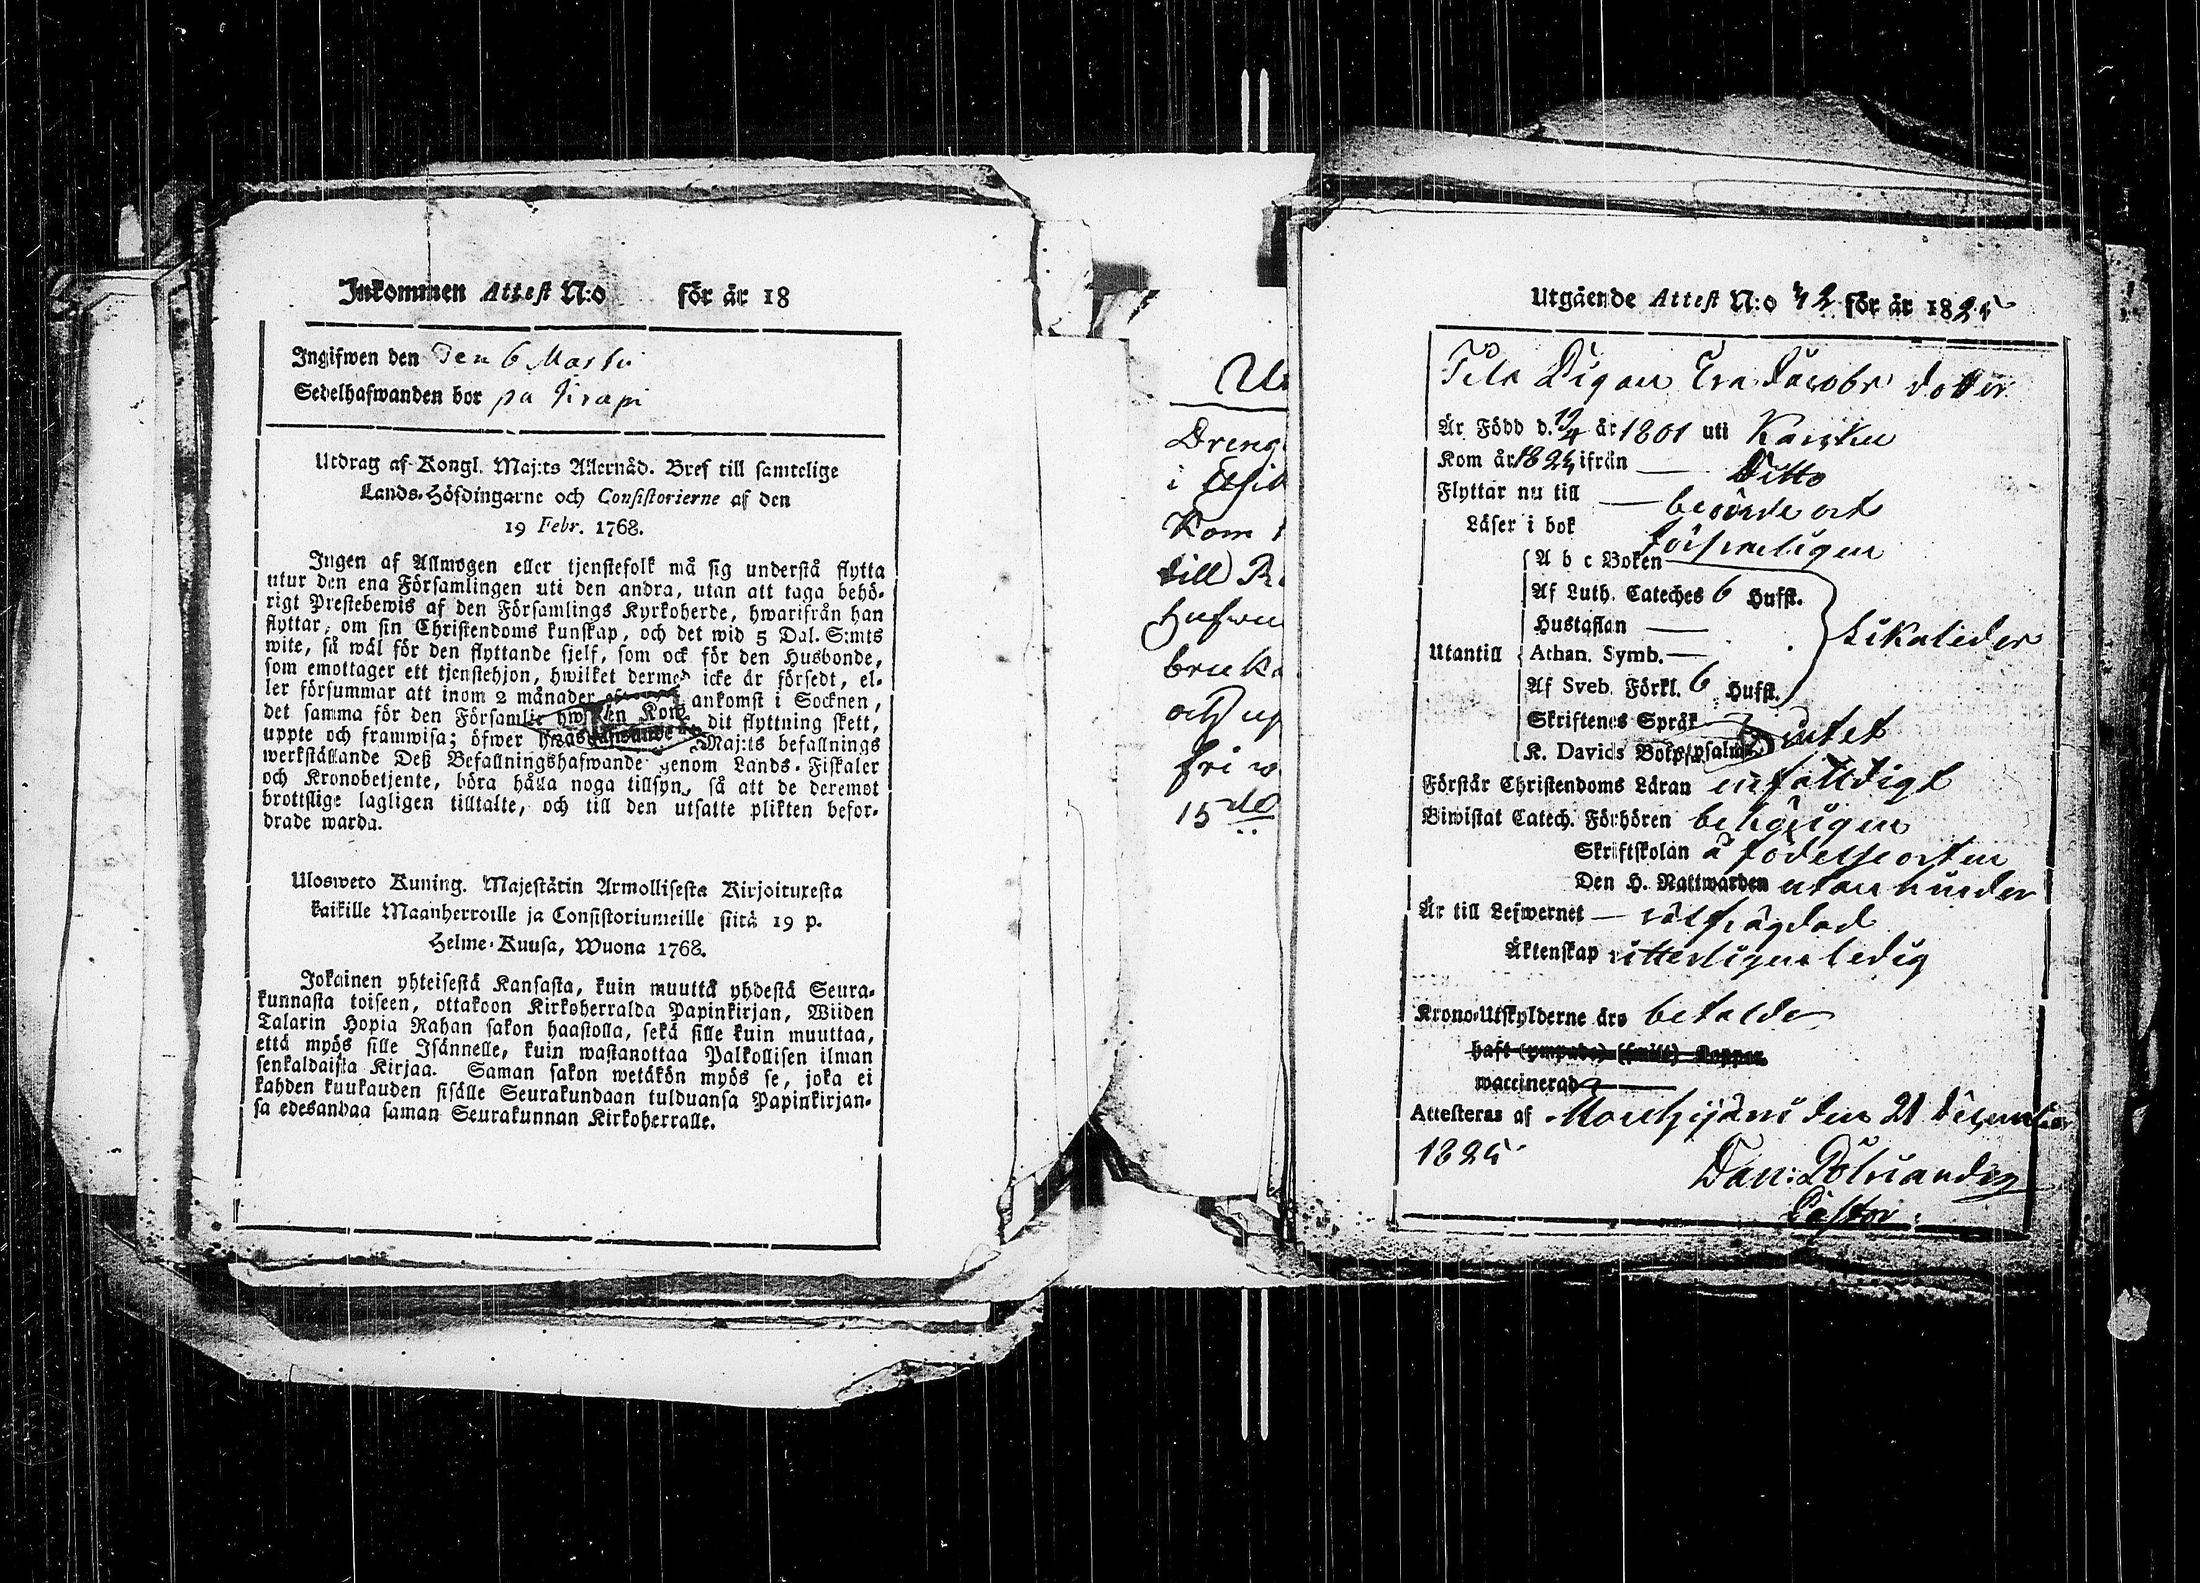 Inkommen Attest N:o för år 18
Ingifwen den Den 6 Martii
Sedelhafwanden bor på
Utdrag af Kongl. Maj:ts Allernåd. Bref till samtelige
Lands-Höfdingarne och Consistorierne af den
19 Febr. 1768.
Ingen af Allmogen eller tjenstefolk må sig understå flytta
utur den ena Församlingen uti den andra, utan att taga behö-
rigt Prestebewis af den Församlings Kyrkoherde, hwarifrån han
flyttar, om sin Christendoms kunskap, och det wid 5 Dal. S:mts
wite, så wäl för den flyttande sjelf, som ock för den Husbonde,
som emottager ett tjenstehjon, hwilket dermed icke är försedt, el-
ler försummar att inom 2 månader ankomst i Socknen,
det samma för den dit flyttning skett,
uppte och framwisa; öfwer Maj:ts befallnings
werkställande Deß Befallningshafwande genom Lands-Fiskaler
och Kronobetjente, böra hålla noga tillsyn, så att de deremot
brottslige lagligen tilltalte, och till den utsatte plikten befor-
drade warda.
Ulosweto Kuning. Majestätin Armollisesta Kirjoituxesta
kaikille Maanherroille ja Consistoriumeille siitä 19 p.
Helme-Kuusa, Wuona 1768.
Jokainen yhteisestä Kansasta, kuin muuttå yhdestä Seura-
kunnasta toiseen, ottakoon Kirkoherralda Papinkirjan, Wiiden
Talarin Hopia Rahan sakon haastolla, sekä sille kuin muuttaa,
että myös sille Isännelle, kuin wastanottaa Palkollisen ilman
senkaldaista Kirjaa. Saman sakon wetäkön myös se, joka ei
kahden kuukauden sisälle Seurakundaan tulduansa Papinkirjan-
sa edesandaa saman Seurakunnan Kirkoherralle.
Dreng
i
Kom
till
och
fri
15de
Utgående Attest N:o 42 för år 1825
Pigan Eva Jacobs dotter
År Född d. 12/4 år 1801 uti
Kom år 1824 ifrån — Ditto
Flyttar nu till —
Läser i bok försvarligen
Utantill
A b c Boken
Af Luth. Cateches 6 Hufst.
Hustaflan —
Athan. Symb. — likaledes
Af Sveb. Förkl. 6 Hufst.
Skriftenes Språk
K. Davids Botpsalmer intet
Förstår Christendoms Läran enfaldigt
Biwistat Catech. Förhören behörigen
Skriftskolan å födelseorten
Den H. Nattwarden utan hinder
Är till Lefwernet — wälfrägdad
Äktenskap witterligen ledig
Krono-Utskylderne äro betalde
haft (ympade) (smitt) Koppor
waccinerad
Attesteras af den 21 December
1825
Dan:
Pastor.